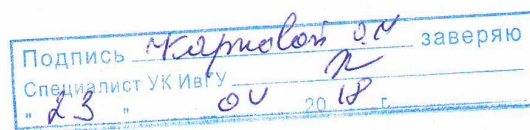 Подпись Карповой О.Н заверяю
Специалист УК ИвГУ
" 23 " 04 2018 г.